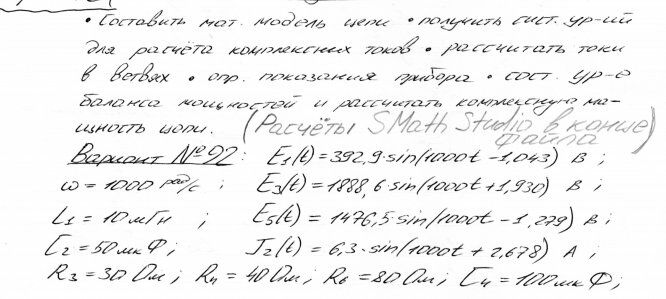 • Составить мат. модель цепи • получить сист. ур-ий
для расчёта комплексных токов • рассчитать токи
в ветвях • опр. показания прибора • сост. ур-е
баланса мощностей и рассчитать комплексную мо-
щность цепи. (Расчёты SMath Studio в конце файла)
Вариант №92: E₁(t)=392,9·sin(1000t-1,043) В ;
ω=1000 рад/с ; E₃(t)=1888,6·sin(1000t+1,930) В ;
L₁=10мГн ; E₅(t)=1476,5·sin(1000t-1,279) В ;
C₂=50мкФ ; J₂(t)=6,3·sin(1000t+2,678) А ;
R₃=30 Ом ; R₄=40 Ом ; R₆=80 Ом ; C₄=100мкФ ;